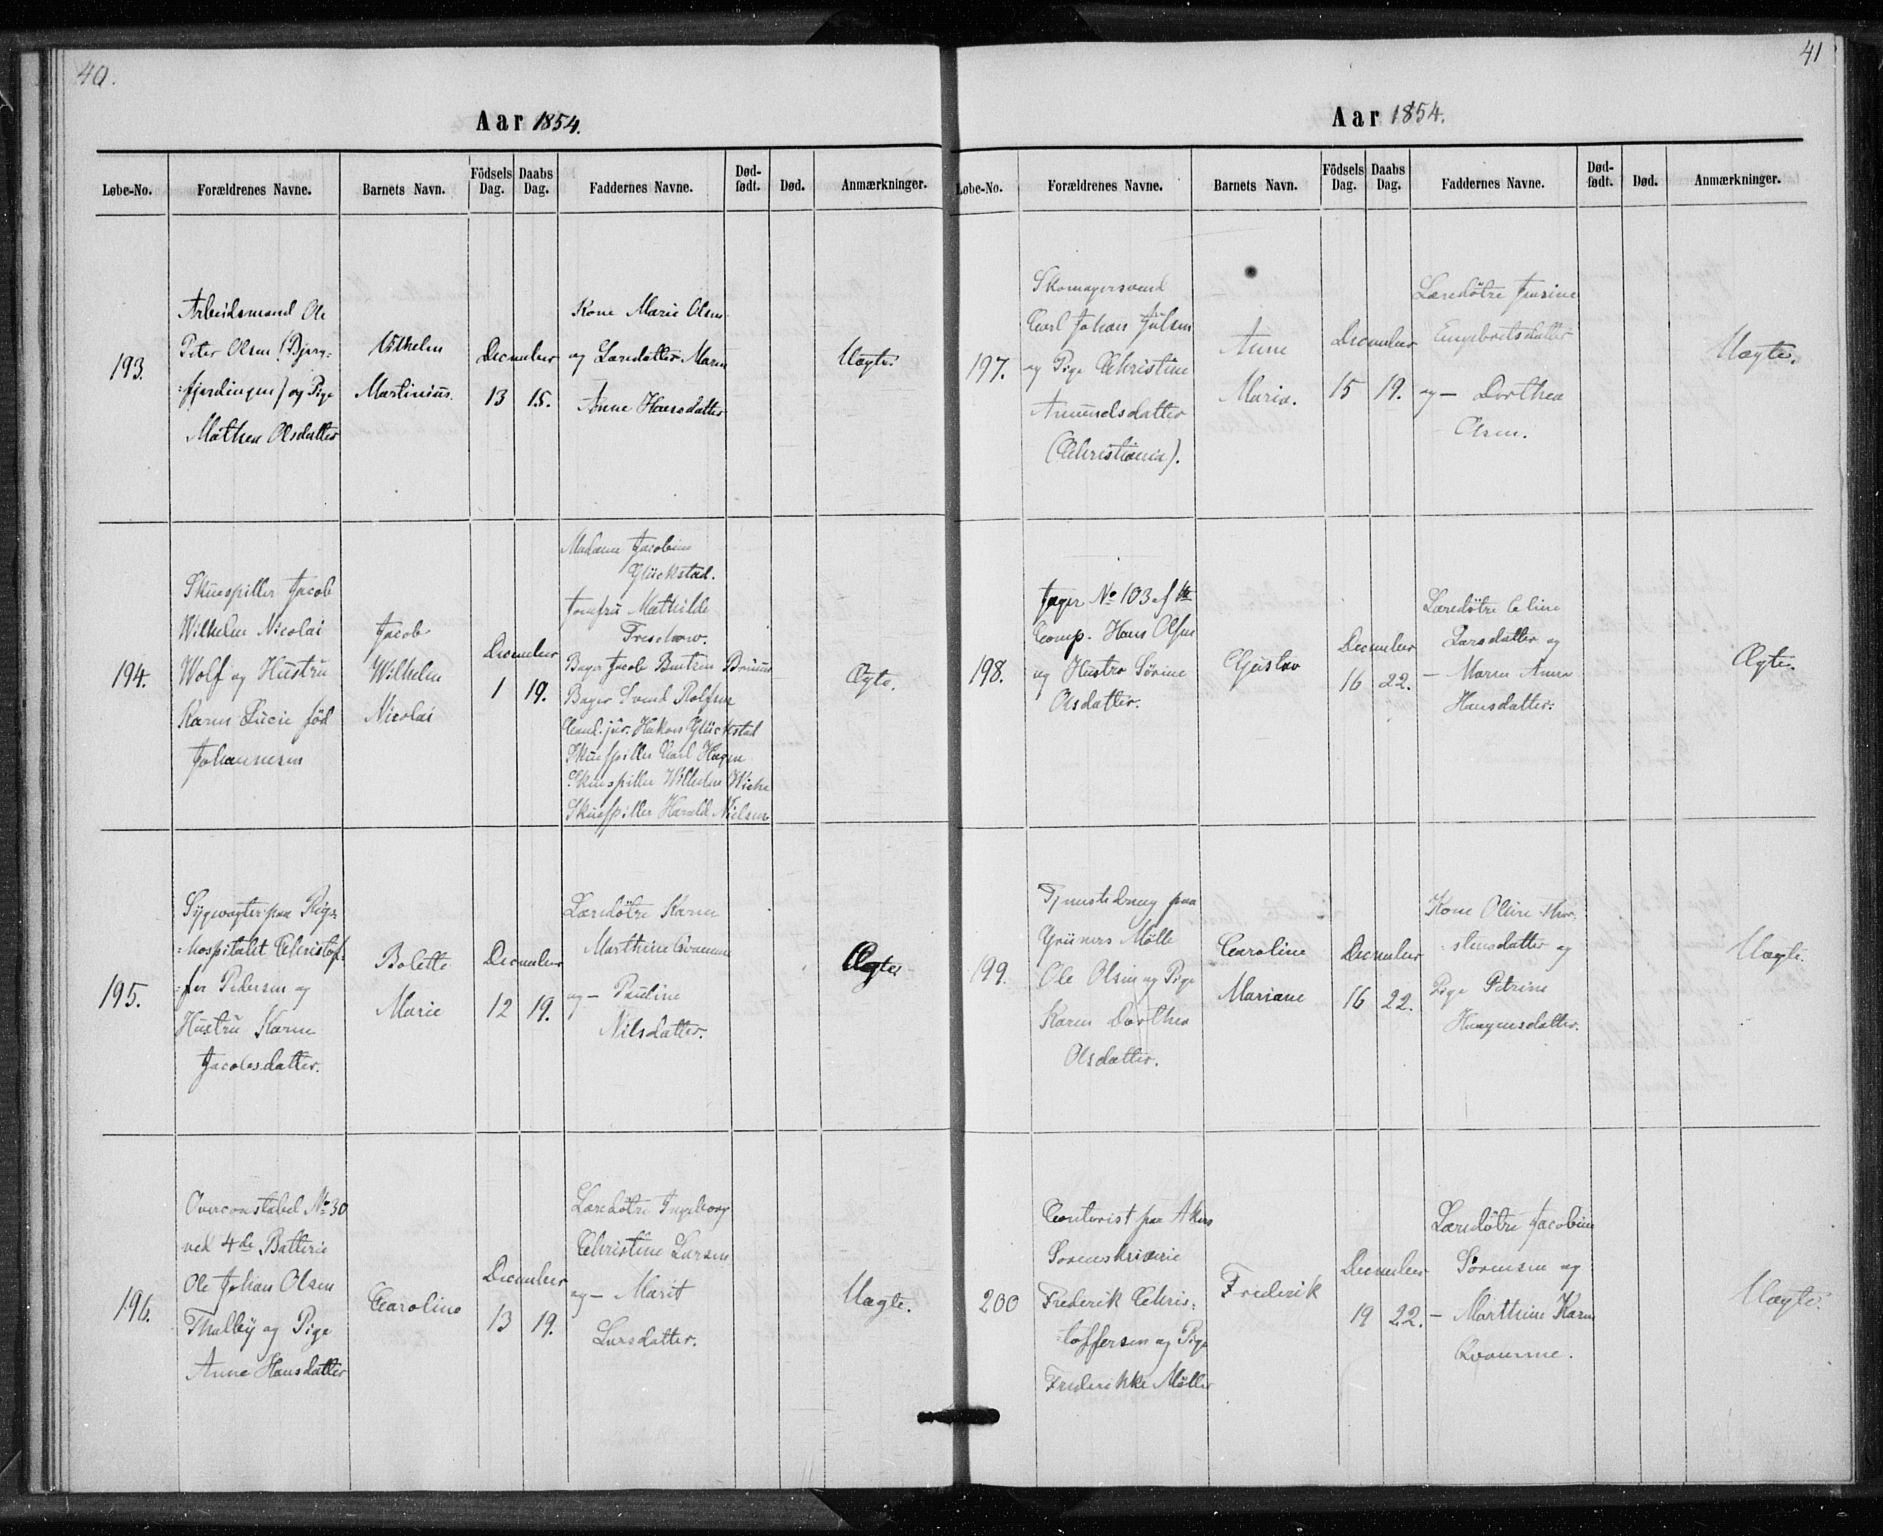 40.
Aar 1854.
Løbe-No. Forældrenes Navne. Barnets Navn. Födsels Dag. Daabs Dag. Faddernes Navne. Død-født. Død. Anmærkninger.
193.
Arbeidsmand Ole
Peter Olsen (Bjerg=
=fjerdingen) og Pige
Mathea Olsdatter
Vilhelm
Martinius.
December
13 15.
Kone Marie Olsen
og Læredatter Maren
Anne Hansdatter
Uægte.
194.
Skuespiller Jacob
Wilhelm Nicolai
Wolf og Hustru
Karen Lucie fød
Johannesen
Jacob
Wilhelm
Nicolai
December
1 19.
Madame Jacobine
Glückstad.
Jomfru Mathilde
Treschow.
Bager Jacob Bentsen Bruun
Bager Svend Rolfsen
Cand. jur. Hakon Glückstad
Skuespiller Carl Hagen
Skuespiller Wilhelm Wiehe
Skuespiller Harald Nielsen
Ægte.
195.
Sygevogter paa Rigs=
=hospitalet Christof=
=fer Pedersen og
Hustru Karen
Jacobsdatter.
Bolette
Marie
December
12 19.
Læredøtre Karen
Marthine Qvamme
og — Pauline
Nilsdatter.
Ægte
196.
Overconstabel No 30
ved 4de Batterie
Ole Johan Olsen
Thalby og Pige
Anne Hansdatter
Caroline
December
13 19.
Læredøtre Ingeborg
Christine Larsen
og — Marit
Larsdatter.
Uægte.
41
Aar 1854.
Løbe-No. Forældrenes Navne. Barnets Navn. Födsels Dag. Daabs Dag. Faddernes Navne. Død-født. Død. Anmærkninger.
197.
Skomagersvend
Carl Johan Julsen
og Pige Christine
Amundsdatter
(Christiania).
Anne
Maria.
December
15 19.
Læredøtre Jensine
Engebretsdatter
og — Dorthea
Olsen.
Uægte.
198.
Jæger No 103 af
Comp. Hans Olsen
og Hustro Sørine
Olsdatter.
Gustav
December
16 22.
Læredøtre Eline
Larsdatter og
— Maren Anna
Hansdatter.
Ægte.
199.
Tjenestedreng paa
Grüners Mølle
Ole Olsen og Pige
Karen Dorthea
Olsdatter.
Caroline
Mariane
December
16 22.
Kone Oline Thor=
=stensdatter og
Pige Petrine
Haagensdatter.
Uægte.
200
Contorist paa Akers
Sorenskriverie
Frederik Chris=
=toffersen og Pige
Frederikke Møller
Frederik
December
19 22.
Læredøtre Jacobine
Sørensen og
— Marthine Karen
Qvamme.
Uægte.